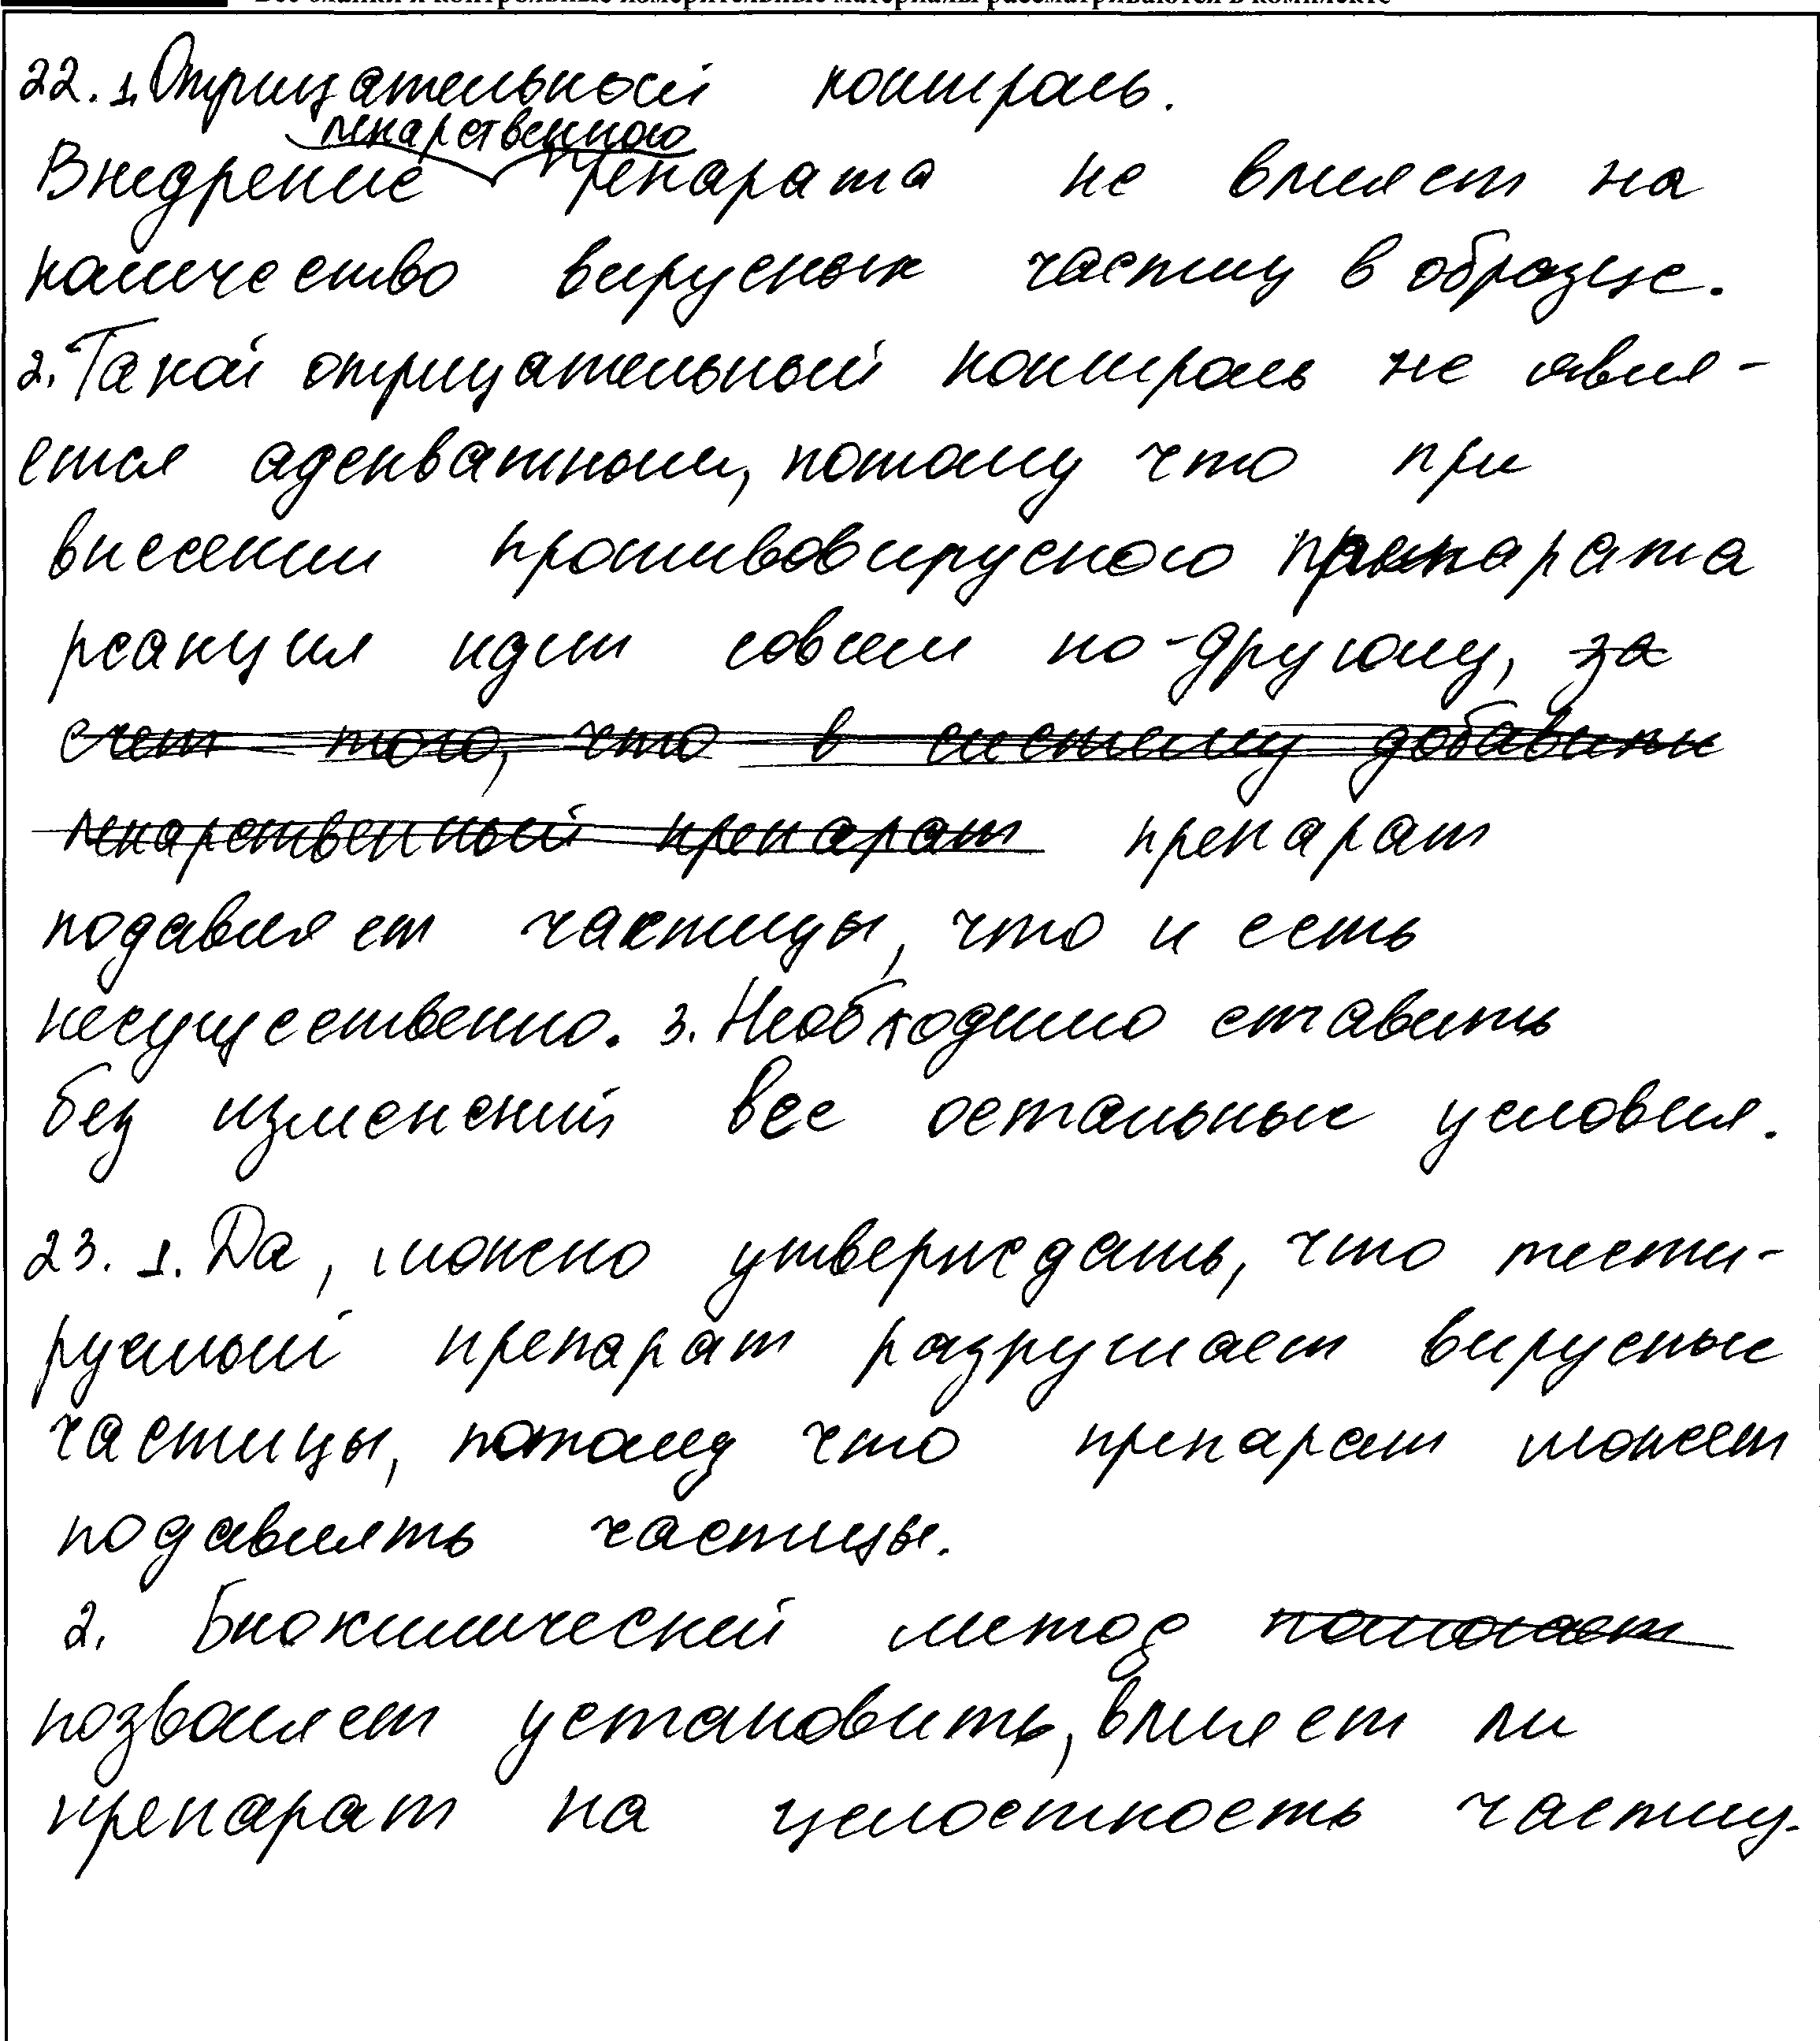 Все бланки и контрольные измерительные материалы рассматриваются в комплекте
22. 1. Отрицательный контроль.
лекарственного
Внедрение препарата не влияет на
количество вирусных частиц в образце.
2. Такой отрицательный контроль не явля-
ется адекватным, потому что при
внесении противовирусного препарата
реакция идет совсем по-другому, за
счет того, что в систему добавили
лекарственный препарат препарат
подавляет частицы, что и есть
несущественно. 3. Необходимо ставить
без изменений все остальные условия.
23. 1. Да, можно утверждать, что тести-
руемый препарат разрушает вирусные
частицы, потому что препарат может
подавлять частицы.
2. Биохимический метод помогает
позволяет установить, влияет ли
препарат на целостность частиц.